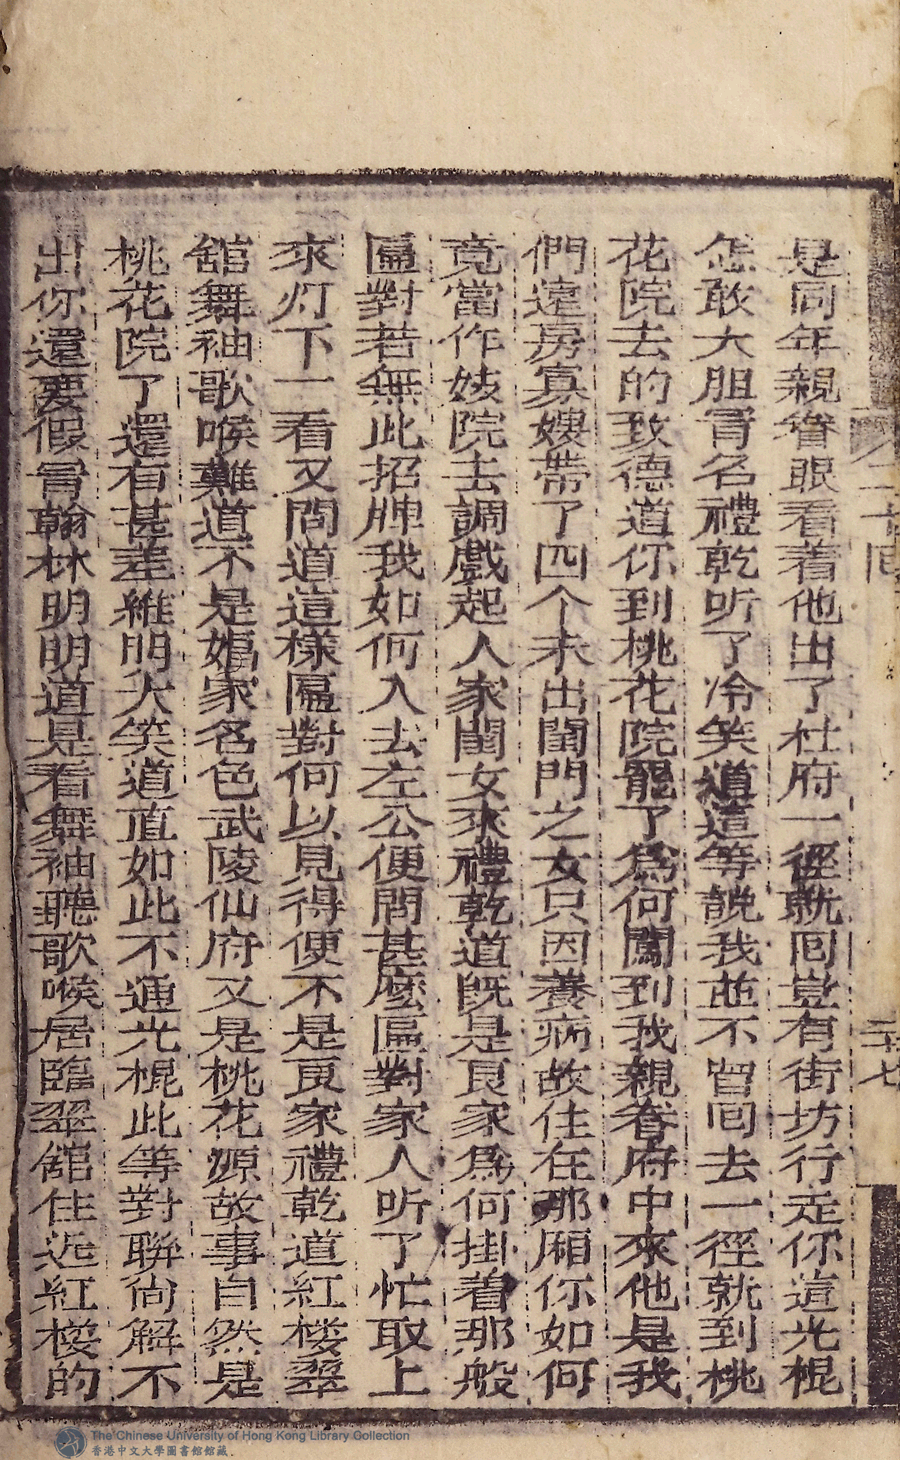 二十回
二十七
是同年親眷眼看着他出了杜府一徑就囘豈有街坊行走你這光棍
怎敢大胆冐名禮乾听了冷笑道這等說我並不曾囘去一徑就到桃
花院去的致德道你到桃花院罷了為何闖到我親眷府中來他是我
們遠房寡嫂帶了四个未出閨門之女只因養病故住在那厢你如何
竟當作妓院去調戲起人家閨女來禮乾道既是良家為何掛着那般
匾對若無此招牌我如何入去左公便問甚麽匾對家人听了忙取上
來灯下一看又問道這樣匾對何以見得便不是良家禮乾道紅楼翠
舘舞袖歌喉難道不是娼家名色武陵仙府又是桃花源故事自然是
桃花院了還有甚差維明大笑道直如此不通光棍此等對聯尚解不
出你還要假冐翰林明明道是看舞袖聽歌喉居臨翠舘住近紅楼的
The Chinese University of Hong Kong Library Collection
香港中文大學圖書館館藏